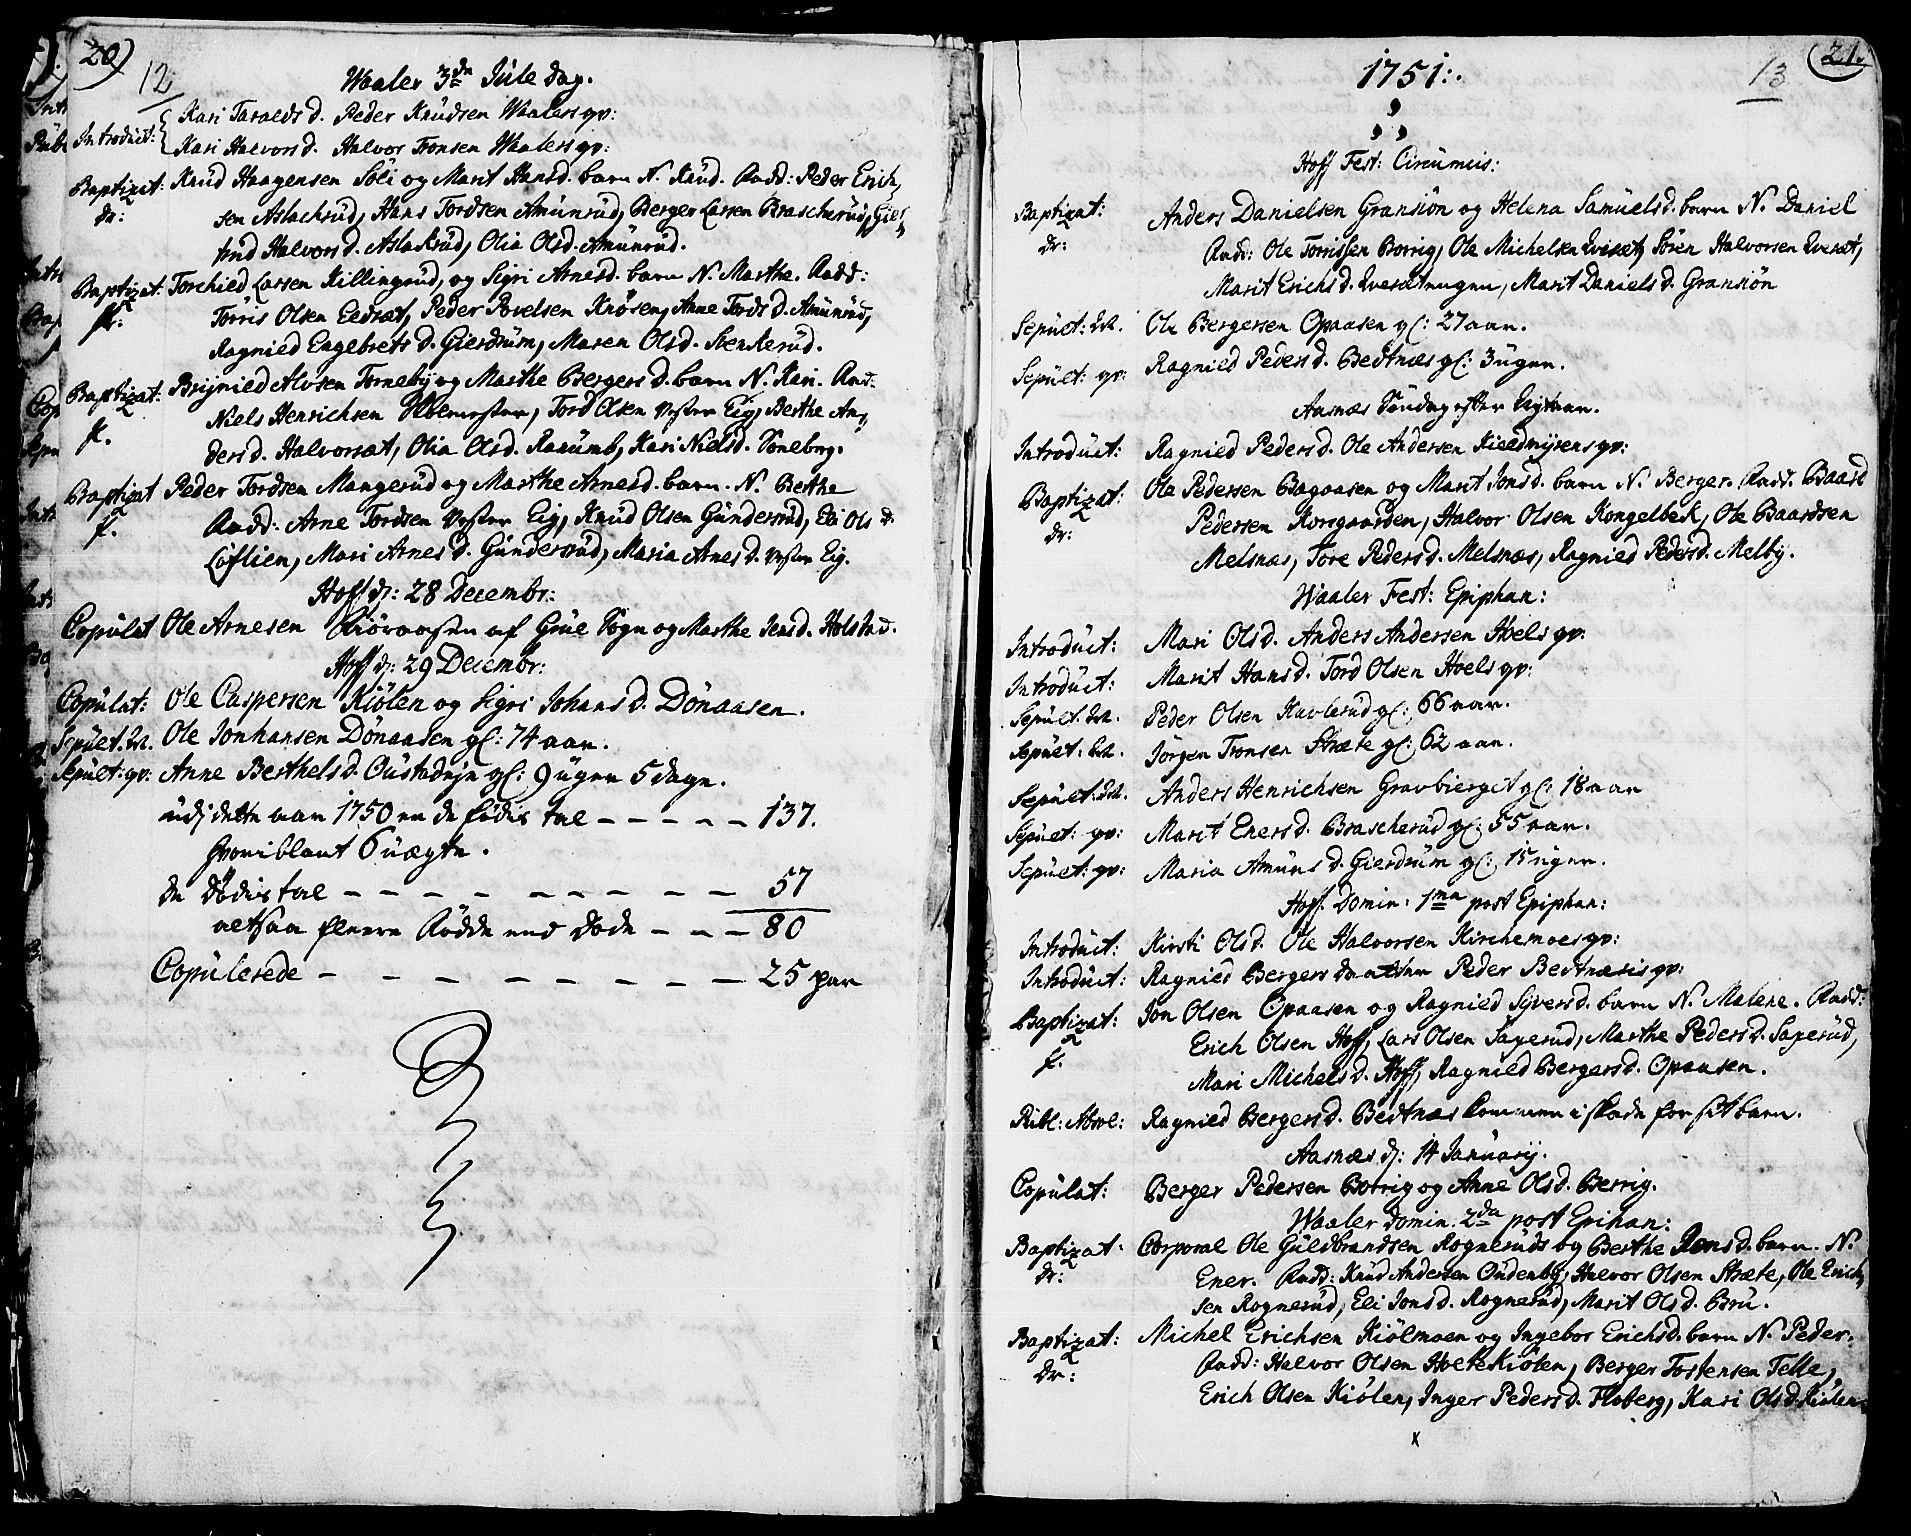 20)
12
Waaler 3de Jule dag.
Introduct: Kari Taralds d. Peder Knudsen Waalers qv:
Kari Halvors d. Halvor Tronsen Waalers qv:
Baptizat: Knud Haagensen Söli og Marit Hans d. barn N. Knud. Fadd: Peder Erich,
dr: sen Aslachrud, Hans Tordsen Amunrud, Berger Larsen Brascherud, Gier,
trud Halvors d. Aslakrud, Olia Ols d. Amunrud.
Baptizat: Torchild Larsen Killingrud, og Sigri Arnes d. barn N. Marthe. Fadd:
p: Törris Olsen Eedsæt, Peder Povelsen Knösen, Anne Tords d. Amunrud,
Ragnild Engebrets d. Gierdrum, Maren Ols d. Svenkerud.
Baptizat: Brynild Alvsen Torneby og Marthe Bergers d. barn N. Kari. Fad:
p. Niels Henrichsen, Tord Olsen Vester Eig, Berthe An,
ders d. Halvorsæt, Olia Ols d. Raaumb, Kari Niels d. Toneborg.
Baptizat Peder Tordsen Mangerud og Marthe Arnes d. barn. N. Berthe
p. Fadd: Arne Tordsen Vester Eig, Knud Olsen Gundersrud, Eli Ols d.
Löflien, Mari Arnes d. Gundersrud, Maria Arnes d. Vester Eig.
Hoff d: 28 Decembr:
Copulat Ole Arnesen Kiöraasen af Grue Sogn og Marthe Jens d. Holstad.
Hoff d: 29 Decembr:
Copulat: Ole Caspersen Kiölen og Sigri Johans d. Dönaasen.
Sepult. M. Ole Jonhansen Dönaasen gl: 74 aar.
Sepult: qv: Anne Berthels d. Gustadeje gl: 9 ugen 5 dage.
udj dette aar 1750 er de födis tal - - - - - 137.
hvoriblant 6 uægte.
de Dödis tal - - - - - - - - - 57
altsaa fleere Födde end Döde - - - 80
Copulerede - - - - - - - - 25 par
21.
13
1751:.
Hoff Fest: Circumcis:
Baptizat: Anders Danielsen Gransiön og Helena Samuels d. barn N. Daniel
dr: Fadd: Ole Torrissen Borrig, Ole Michelsen Qveset, Sören Halvorsen Qveset,
Marit Erichs d. Qvesetnugen, Marit Daniels d. Gransiön
Sepult: M. Ole Bergersen Opaasen gl: 27 aar.
Sepult: qv: Ragnild Peders d. Bedtnes gl: 3 ugen.
Aasnes Söndag efter Nytaar.
Introduct: Ragnild Peders d. Ole Andersen Kieldmyrens qv:
Baptizat: Ole Pedersen Bagaasen og Marit Jons d. barn N. Berger. Fadd. Baard
dr: Pedersen Korsgaarden, Halvor Olsen Kongelbek, Ole Baardsen
Melsnæs, Tore Peders d. Melsnæs, Ragnild Peders d. Melby.
Waaler Fest: Epiphan:
Introduct: Mari Ols d. Anders Andersen Hoels qv:
Introduct: Marit Hans d. Tord Olsen Hoels qv:
Sepult. M. Peder Olsen Havlerud gl: 66 aar.
Sepult: M. Jörgen Tronsen Stræte gl: 62 aar.
Sepult: M. Anders Henrichsen Gravbierget gl: 18 aar
Sepult: qv: Marit Eners d. Brascherud gl: 55 aar.
Sepult: qv: Maria Amuns d. Gierdrum gl: 15 ugen.
Hoff. Domin: 1ma post Epiphan:
Introduct: Kirsti Ols d. Ole Halvorsen Kirchemoes qv:
Introduct: Ragnild Bergers daatter Peder Bedtnæsis qv:
Baptizat: Jon Olsen Opaasen og Ragnild Syvers d. barn N. Malene. Fadd:
p. Erich Olsen Hoff, Lars Olsen Sagerud, Marthe Peders d. Sagerud,
Mari Michels d. Hoff, Ragnild Bergers d. Opaasen.
Publ: Absol: Ragnild Bergers d. Bedtnæs kommen i skade for sit barn.
Aasnæs d: 14 Januarij.
Copulat: Berger Pedersen Borrig og Anne Ols d. Berrig.
Waaler Domin. 2da post Epihan:
Baptizat: Corporal Ole Guldbrandsen Rogneruds og Berthe Jons d. barn. N.
dr: Ener. Fadd: Knud Andersen Oudenby, Halvor Olsen Stræte, Ole Erich,
sen Rognerud, Eli Jons d. Rognerud, Marit Ols d. Bru.
Baptizat: Michel Erichsen Kiölmoen og Ingebor Erichs d. barn N. Peder.
dr: Fadd: Halvor Olsen Holtekiölen, Berger Tostensen Telle,
Erich Olsen Kiölen, Inger Peders d. Floberg, Kari Ols d. Kiölen.
x